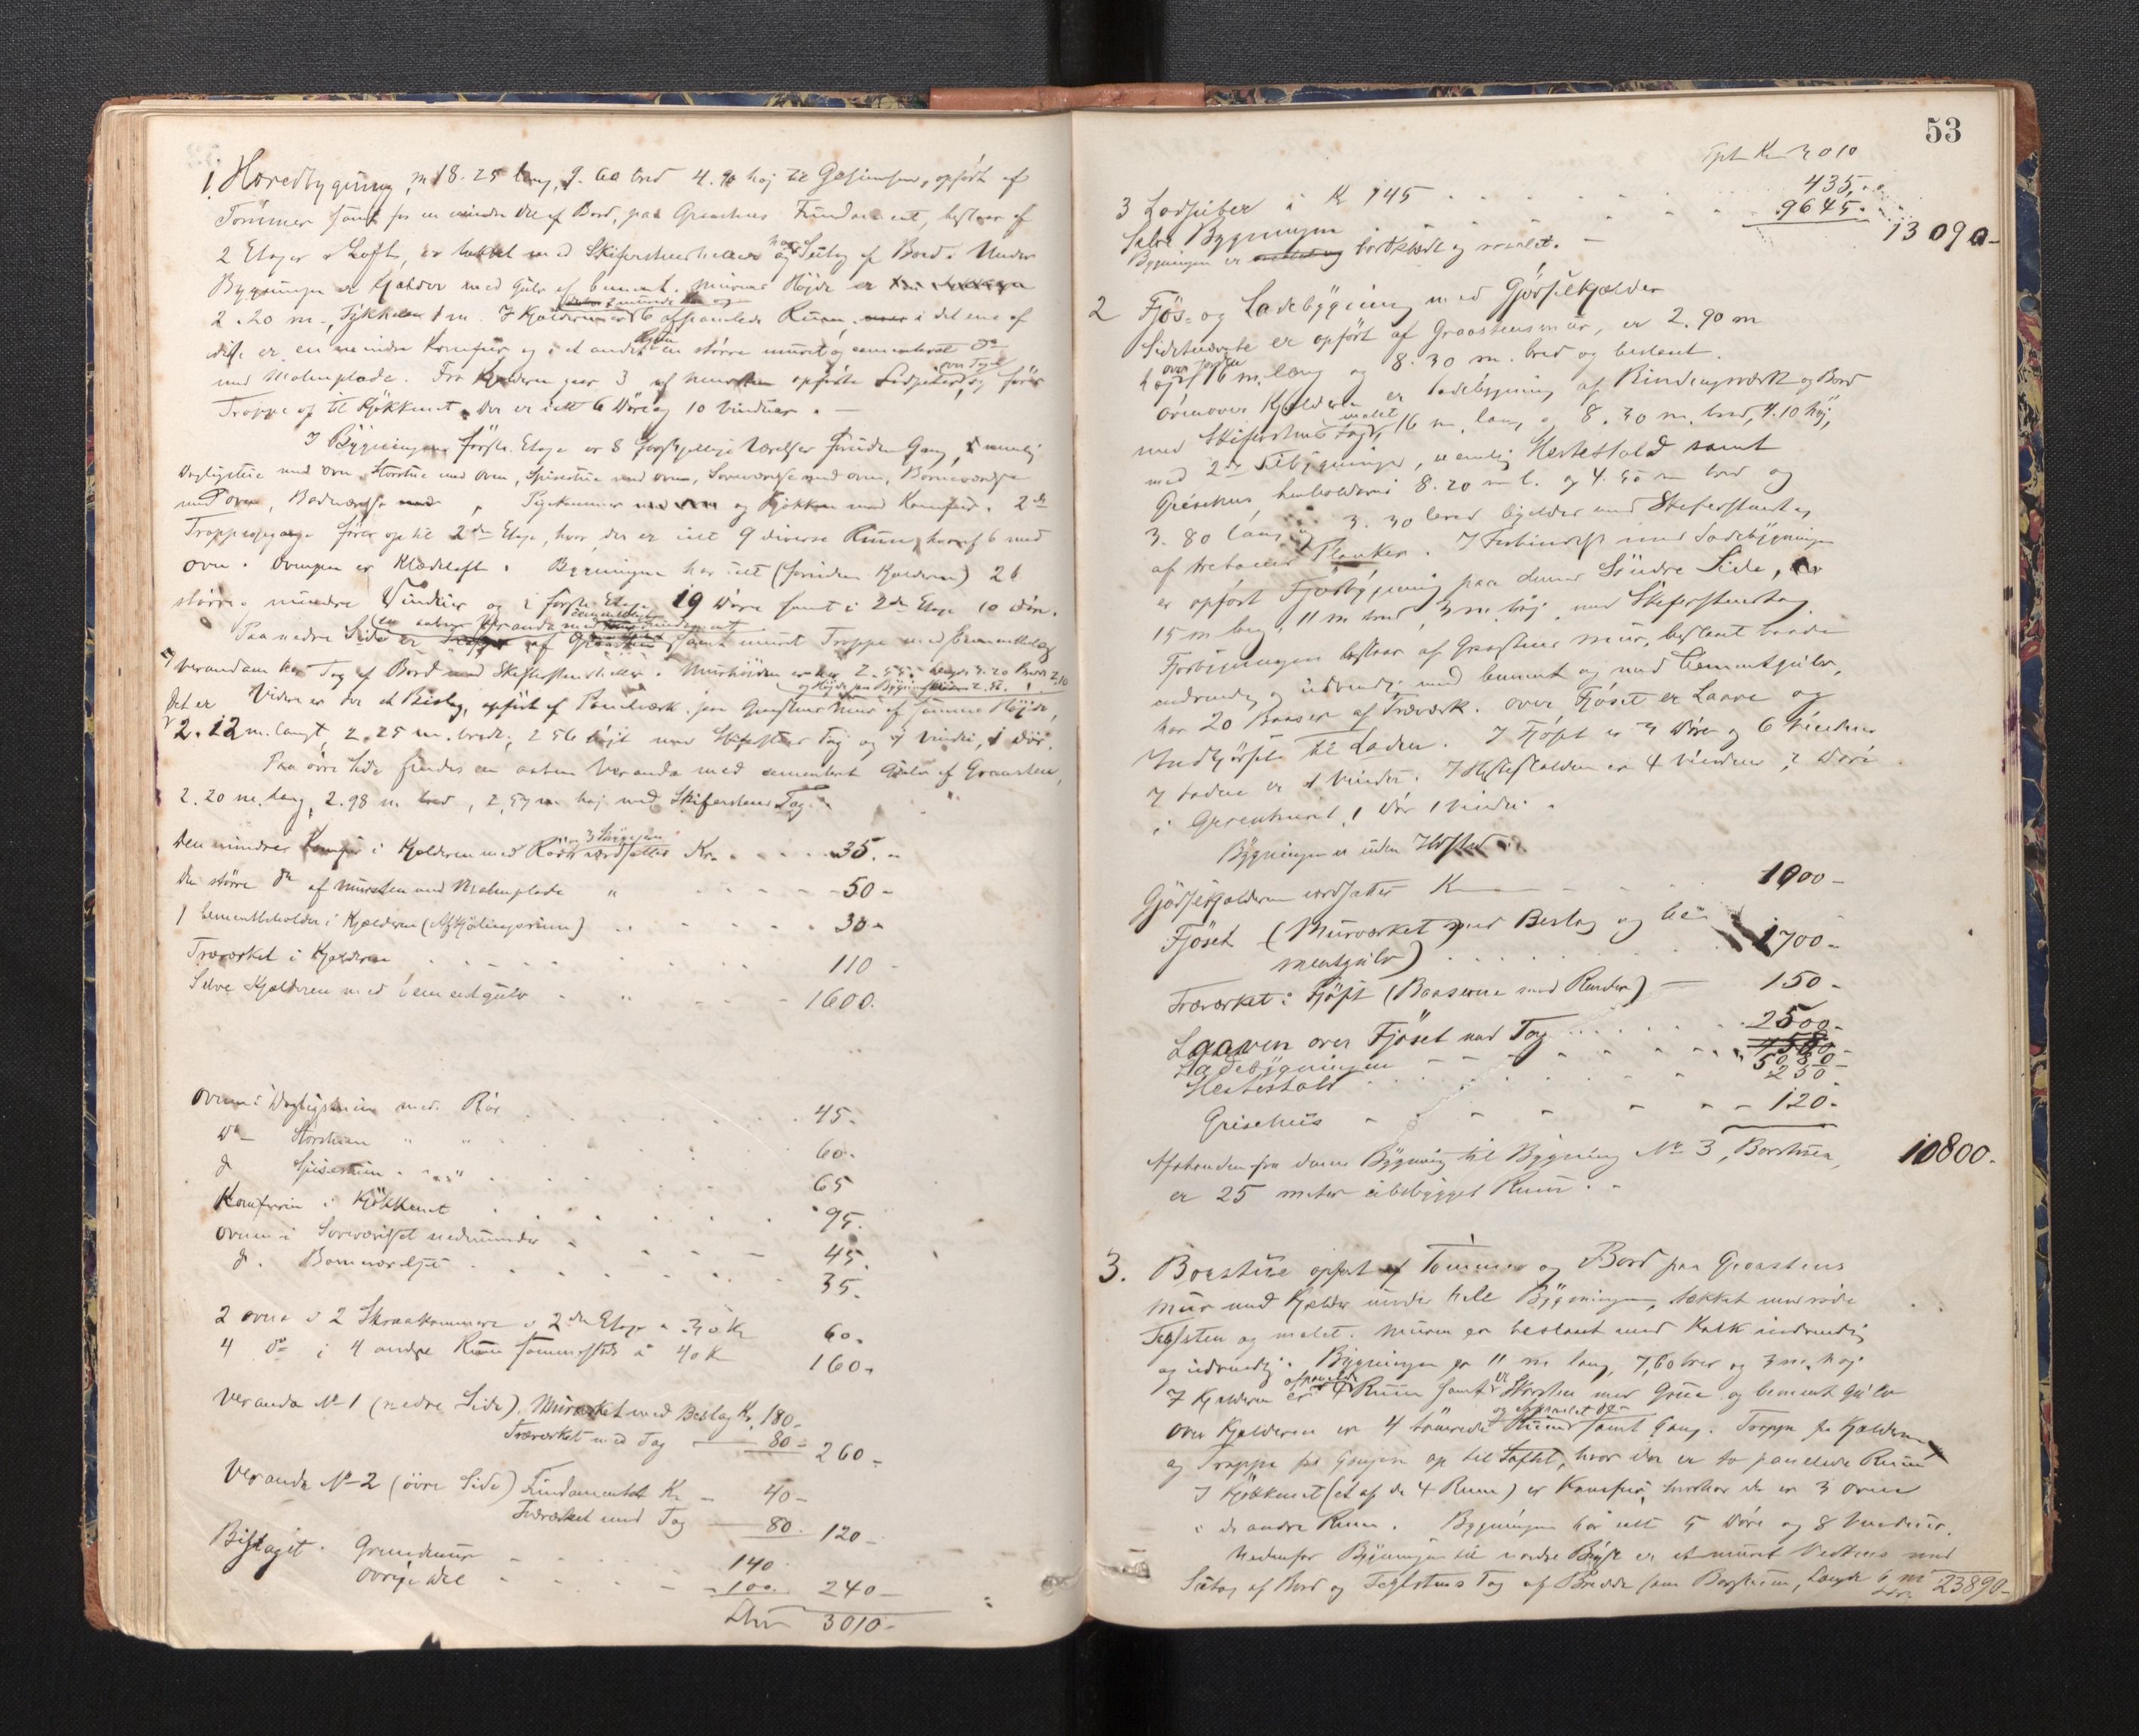 1. Hovedbygning, m 18.25 lang, 9.60 bred 4.90 høj til Gesimsen, opført af
Tømmer samt for en mindre Del af Bord, paa Graastens Fundament, bestaar af
2 Etager & Loft, er tækket med Skifersten og Sutag af Bord. Under
Bygningen er Kjælder med Gulv af Cement. Murens Højde er
2.20 m., Tykkelse 1 m. I Kjælderen er 6 afpanelede Rum, i det ene af
disse er en mindre Komfur og i et andet Rum en større muret og cementeret Do
med Malmplade. Fra Kjælderen gaar 3 af Mursten opførte Lodpiber over Taget og fører
Trappe op til Kjøkkenet. Der er ialt 6 Døre og 10 Vinduer. —
I Bygningens første Etage er 8 forskjellige Værelser foruden Gang, nemlig
Dagligstue med Ovn, Storstue med Ovn, Spisestue med Ovn, Soveværelse med Ovn, Børneværelse
med Ovn, Badeværelse, Pigekammer og Kjøkken med Komfur. 2de
Trappeopgange fører op til 2den Etage, hvor der er ialt 9 diverse Rum, hvoraf 6 med
Ovn. Ovenpaa er Klædeloft. Bygningen har ialt (foruden Kjælderen) 26
større & mindre Vinduer og i første Etage 19 Døre samt i 2den Etage 10 Døre.
Paa nedre Side er en aaben Veranda med cementeret Fundament af Graasten samt muret Trappe med Cementbelæg
Verandaen har Tag af Bord med Skifersten. Murhøiden er her 2.55. Længde 3.20 Bredde 2.10
og Højde paa Bygningen 2.56.
Videre er der et Bislag, opført af Panelværk paa Graastens Mur af samme Højde,
Det er 2.12 m. langt, 2.25 m. bredt, 2.56 højt med Skifersten Tag og 4 Vindu, 1 Dør.
Paa øvre Side findes en aaben Veranda med cementeret Gulv af Graasten,
2.20 m. lang, 2.98 m bred, 2.57 m høj med Skiferstens Tag.
Den mindre Komfur i Kjælderen med Rør værdsættes Kr. 35.-
Den større do af Mursten med Malmplade " 50-
1 Cementbeholder i Kjælderen (Afkjølingsrum) 30-
Træværket i Kjælderen 110-
Selve Kjælderen med Cementgulv 1600.
Ovnen i Dagligstuen med Rør 45-
Do — Storstuen " " 60-
d Spisestuen " " 65
Komfuren i Kjøkkenet 95.
Ovnen i Soveværelset nedenunder 45.
d. Barneværelset 35.
2 Ovne i 2 Skraakammere i 2den Etage a 30 Kr 60.
4 do i 4 andre Rum sammesteds a 40 Kr 160.
Veranda No 1 (nedre Side). Murværket med Beslag Kr. 180.-
Træværket med Tag 80- 260-
Veranda No 2 (øvre Side) Fundamentet Kr — 40-
Træværket med Tag 80. 120-
Bislaget. Grundmur 140
Øvrige Del 100. 240-
3010-
53
Tpt. Kr 3010
3 Lodpiber à Kr 145 435.
Selve Bygningen 9645. 13090-
Bygningen er bordklædt og malet. —
2 Fjøs- og Ladebygning med Gjødselkjælder
Sidstnævnte er opført af Graastensmur, er 2.90 m
høj over Jorden, 16 m. lang og 8.30 m. bred og beslaat.
Ovenover Kjælderen er Ladebygning af Bindingsværk og Bord
med Skiferstens Tag, malet, 16 m. lang, 8.30 m. bred, 4.10 høj,
med 2de Tilbygninger, nemlig Hestestald samt
Grisehus, henholdsvis 8.20 m l. og 4.50 m bred og
3.80 lang og 3.30 bred Gjelder med Skiferstenstag
af Planker. I Forbindelse med Ladebygningen
er opført Fjøsbygning paa dennes Søndre Side,
15 m lang, 11 m bred, 3 m høj, med Skiferstenstag.
Fjøsbygningen bestaar af Graastens Mur, beslaaet baade
indvendig og udvendig med Cement og med Cementgulv,
har 20 Baaser af Træværk. Over Fjøset er Laave og
Indkjørsel til Laden. I Fjøset er 3 Døre og 6 Vinduer
I Laden er 1 Vindu. I Hestestalden er 4 Vinduer, 2 Døre
i Grisehuset 1 Dør 1 Vindu.
Bygningen er uden Ildsted.
Gjødselkjælderen værdsættes Kr 1000-
Fjøset (Murværket med Beslag og Ce-
mentgulv) 1700-
Træværket i Fjøset (Baaserne med Render) — 150-
Laaven over Fjøset med Tag 2500-
Ladebygningen 5
Hestestald 250
Grisehus 120-
10800-
Afstanden fra denne Bygning til Bygning No 3, Borstuen,
er 25 meter ubebygget Rum.
3. Borstue opført af Tømmer og Bord paa Graastens
Mur med Kjælder under hele Bygningen, tækket med røde
Teglsten og malet. Muren er beslaaet med Kalk indvendig
og udvendig. Bygningen er 11 m lang, 7,60 bred og 3 m. høj
I Kjælderen er 4 afpanelede Rum samt Skorsten med Grue og Cement Gulv
Over Kjælderen er 4 tømrede og afpanelede Rum samt Gang. Trappe fra Kjælderen
og Trappe fra Gangen op til Loftet, hvor der er to panelede Rum
I Kjøkkenet (et af de 4 Rum) er Komfur, hvorhos der er 3 Ovne
i de andre Rum. Bygningen har ialt 5 Døre og 8 Vinduer.
Nedenfor Bygningen til nordre er et muret Vedhus med
Sutag af Bord og Teglstens Tag af Bredde som Borstuen, Længde 6 m
23890-